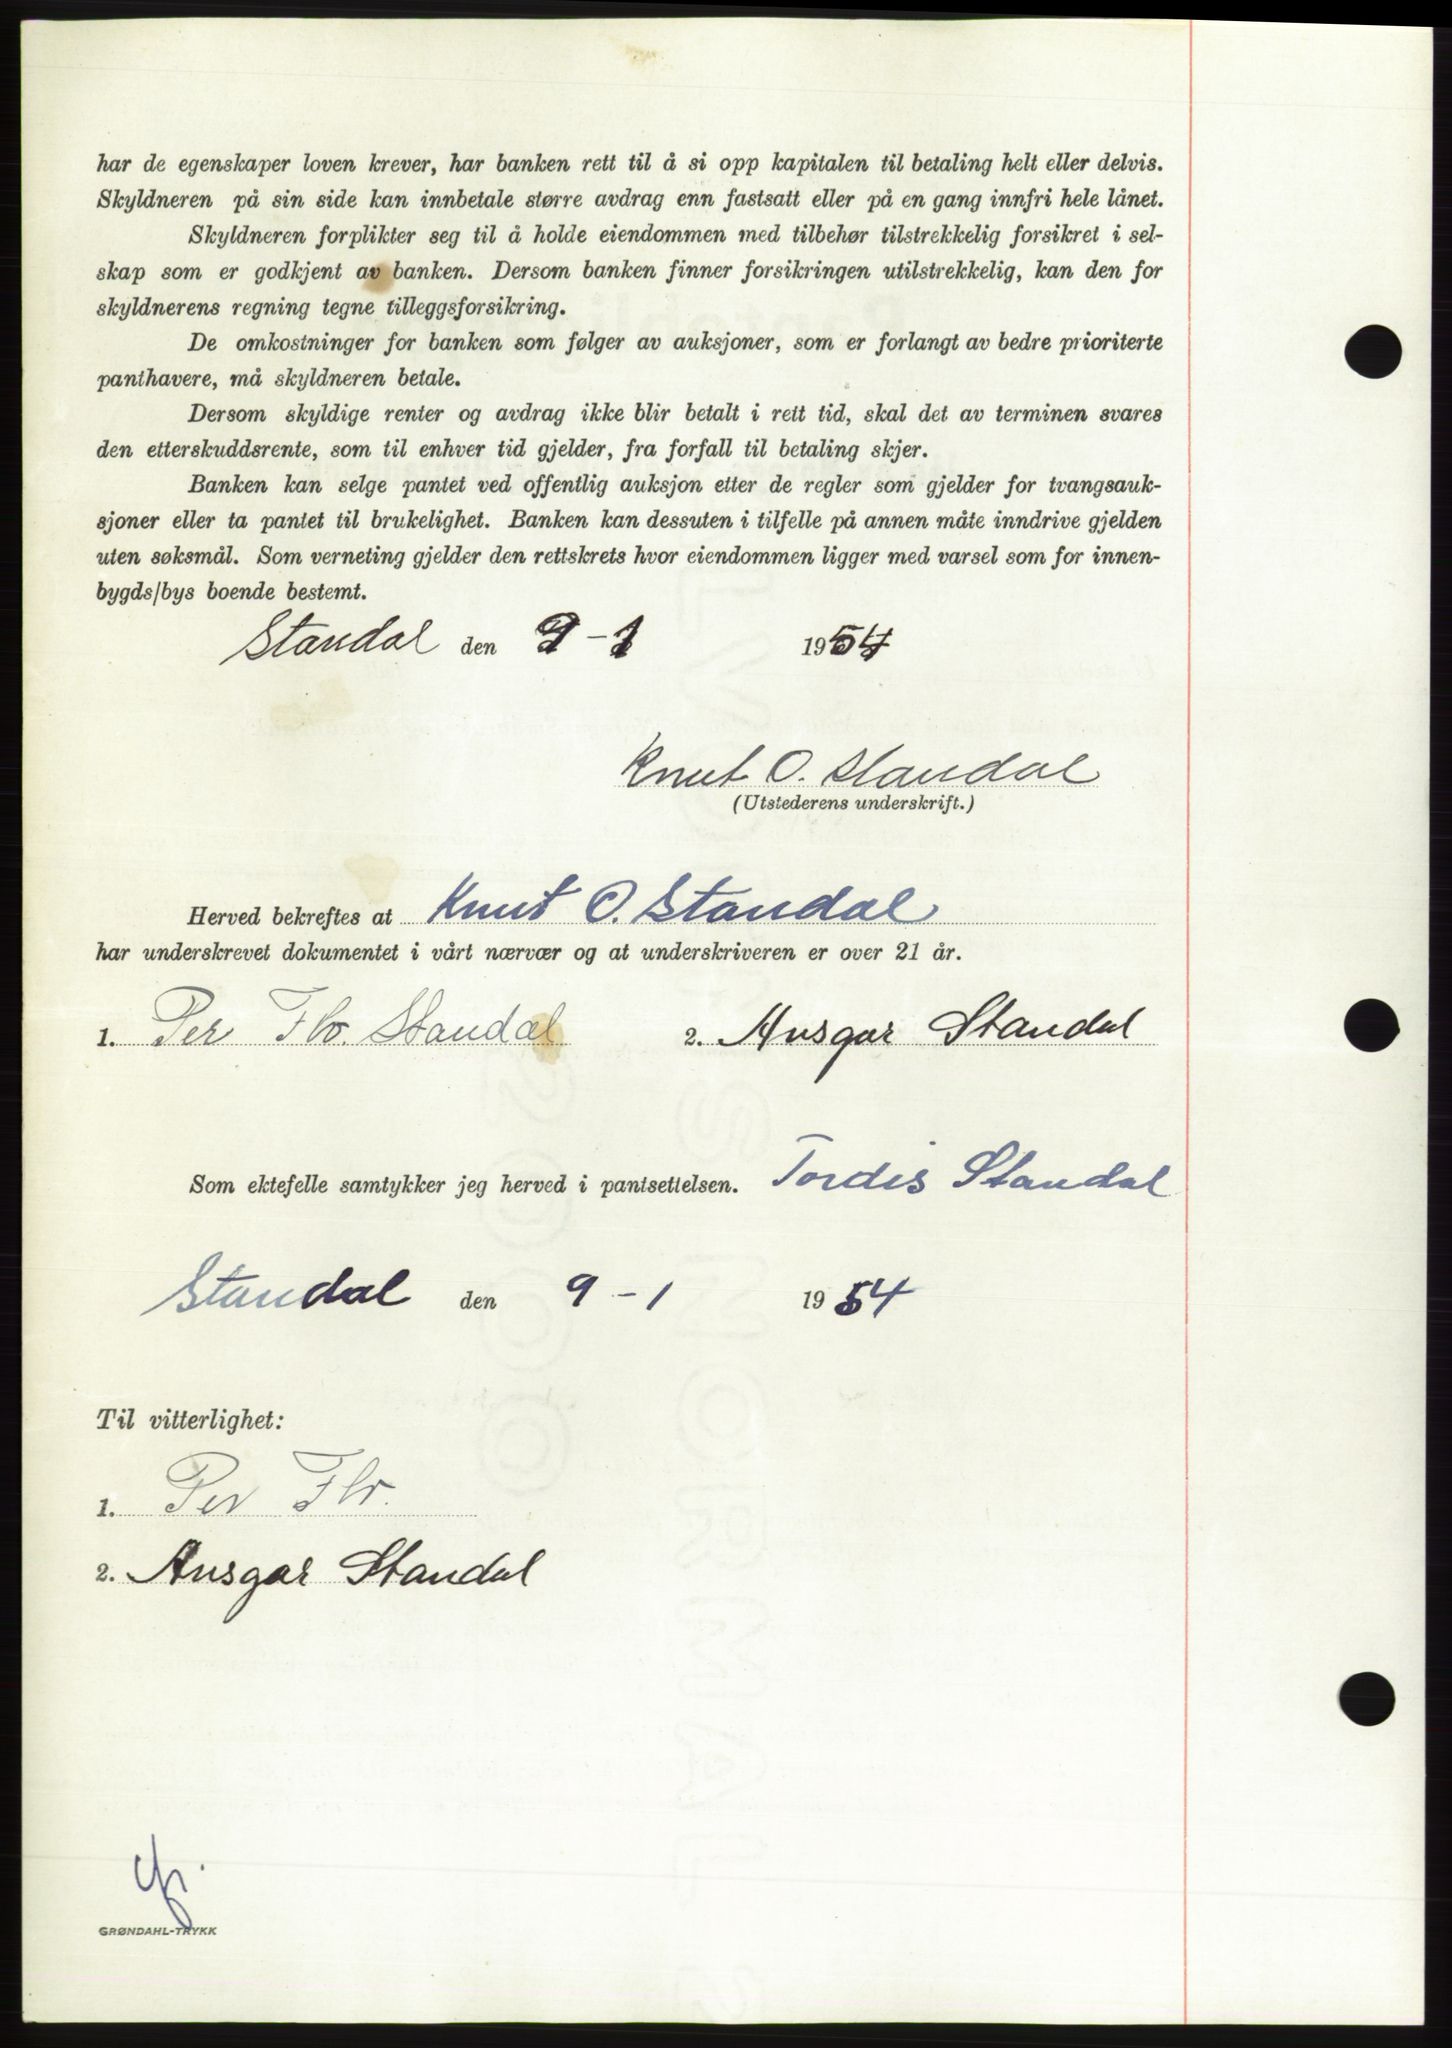 har de egenskaper loven krever, har banken rett til å si opp kapitalen til betaling helt eller delvis.
Skyldneren på sin side kan innbetale større avdrag enn fastsatt eller på en gang innfri hele lånet.
Skyldneren forplikter seg til å holde eiendommen med tilbehør tilstrekkelig forsikret i sel-
skap som er godkjent av banken. Dersom banken finner forsikringen utilstrekkelig, kan den for
skyldnerens regning tegne tilleggsforsikring.
De omkostninger for banken som følger av auksjoner, som er forlangt av bedre prioriterte
panthavere, må skyldneren betale.
Dersom skyldige renter og avdrag ikke blir betalt i rett tid, skal det av terminen svares
den etterskuddsrente, som til enhver tid gjelder, fra forfall til betaling skjer.
Banken kan selge pantet ved offentlig auksjon etter de regler som gjelder for tvangsauk-
sjoner eller ta pantet til brukelighet. Banken kan dessuten i tilfelle på annen måte inndrive gjelden
uten søksmål. Som verneting gjelder den rettskrets hvor eiendommen ligger med varsel som for innen-
bygds/bys boende bestemt.
Standal den 9-1 1954
Knut O. Standal
(Utstederens underskrift.)
Herved bekreftes at Knut O. Standal
har underskrevet dokumentet i vårt nærvær og at underskriveren er over 21 år.
1. Per Flo. Standal 2. Ansgar Standal
Som ektefelle samtykker jeg herved i pantsettelsen. Tordis Standal
Standal den 9-1 1954
Til vitterlighet:
1. Per Flo.
2. Ansgar Standal
GRØNDAHL-TRYKK